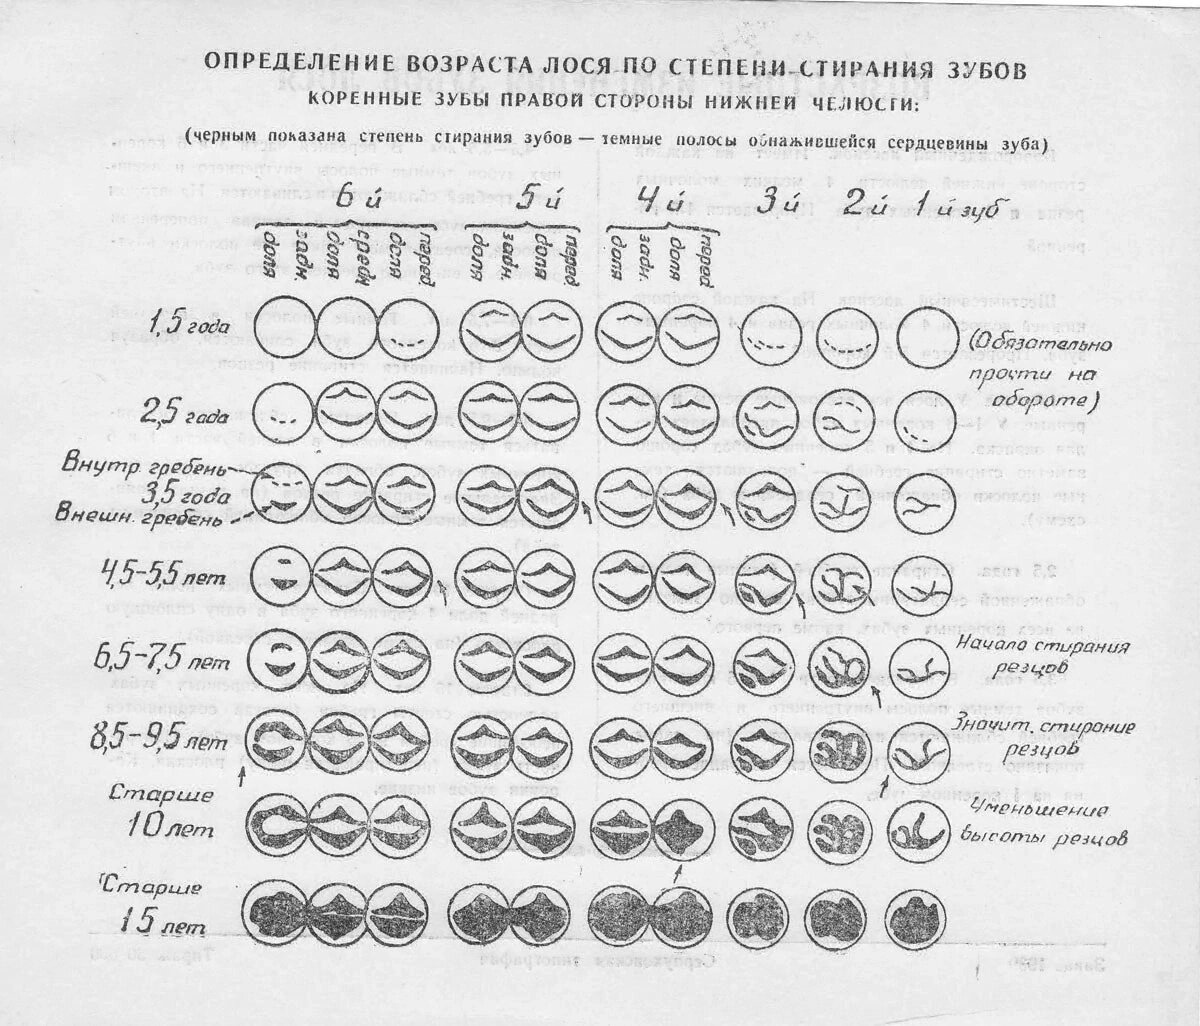 ОПРЕДЕЛЕНИЕ ВОЗРАСТА ЛОСЯ ПО СТЕПЕНИ СТИРАНИЯ ЗУБОВ
КОРЕННЫЕ ЗУБЫ ПРАВОЙ СТОРОНЫ НИЖНЕЙ ЧЕЛЮСТИ:
(черным показана степень стирания зубов — темные полосы обнажившейся сердцевины зуба)
6й 5й 4й 3й 2й 1й зуб
задн. доля средн. доля перед. доля задн. доля перед. доля задн. доля перед. доля
1,5 года
(Обязательно
прочти на
обороте)
2,5 года
Внутр. гребень
3,5 года
Внешн. гребень
4,5-5,5 лет
6,5-7,5 лет
Начало стирания
резцов
8,5-9,5 лет
Значит. стирание
резцов
Старше
10 лет
Уменьшение
высоты резцов
Старше
15 лет